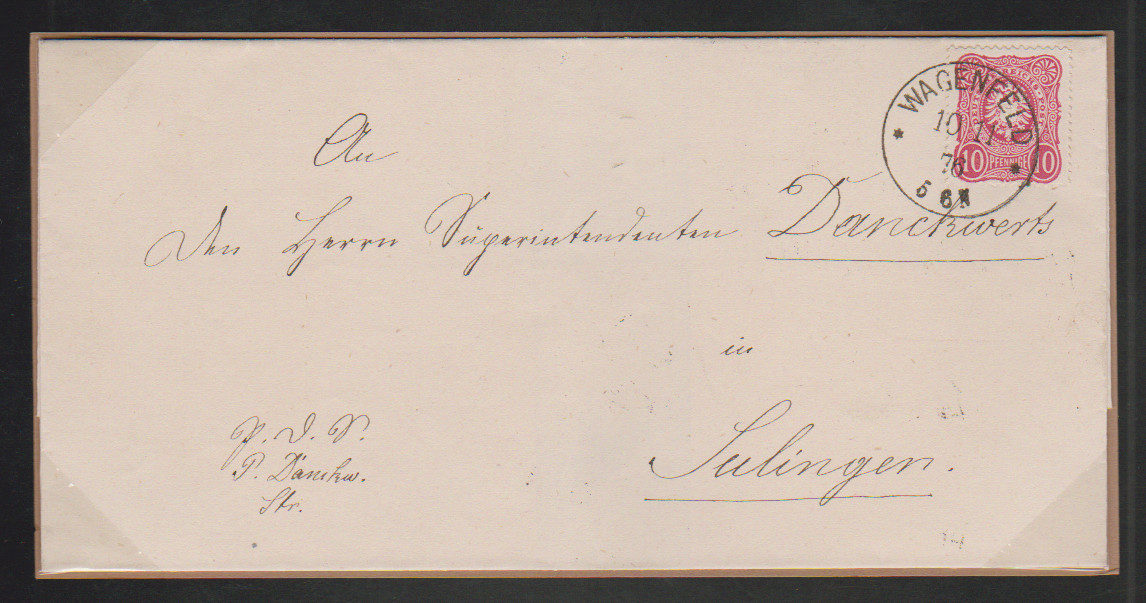 WAGENFELD
10 11
76
5 6 N
10 PFENNIGE 10
An
Den Herrn Superintendenten Danckwerts
in
Sulingen.
P. D. S.
P. Danckw.
Str.